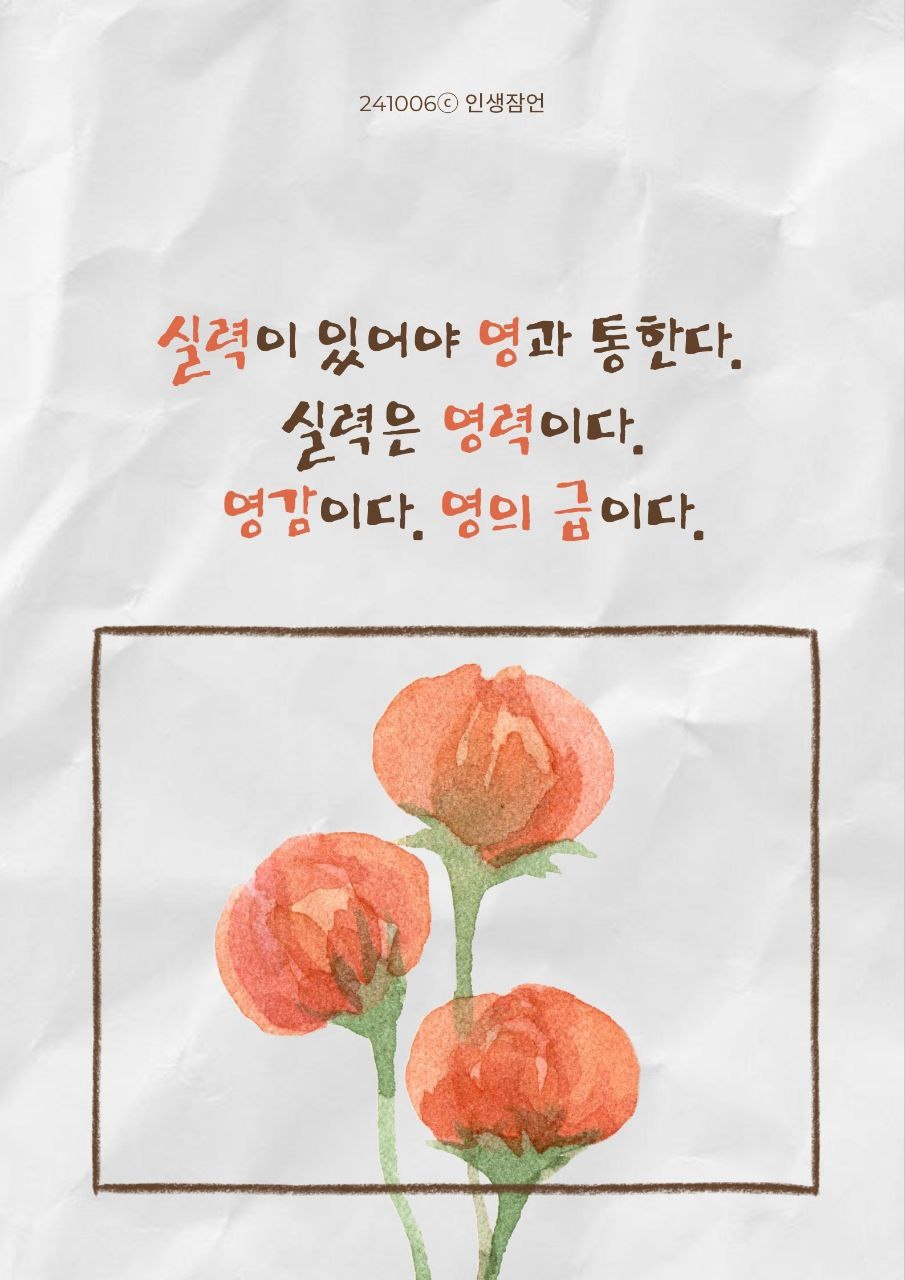 241006ⓒ 인생잠언
실력이 있어야 영과 통한다.
실력은 영력이다.
영감이다. 영의 급이다.